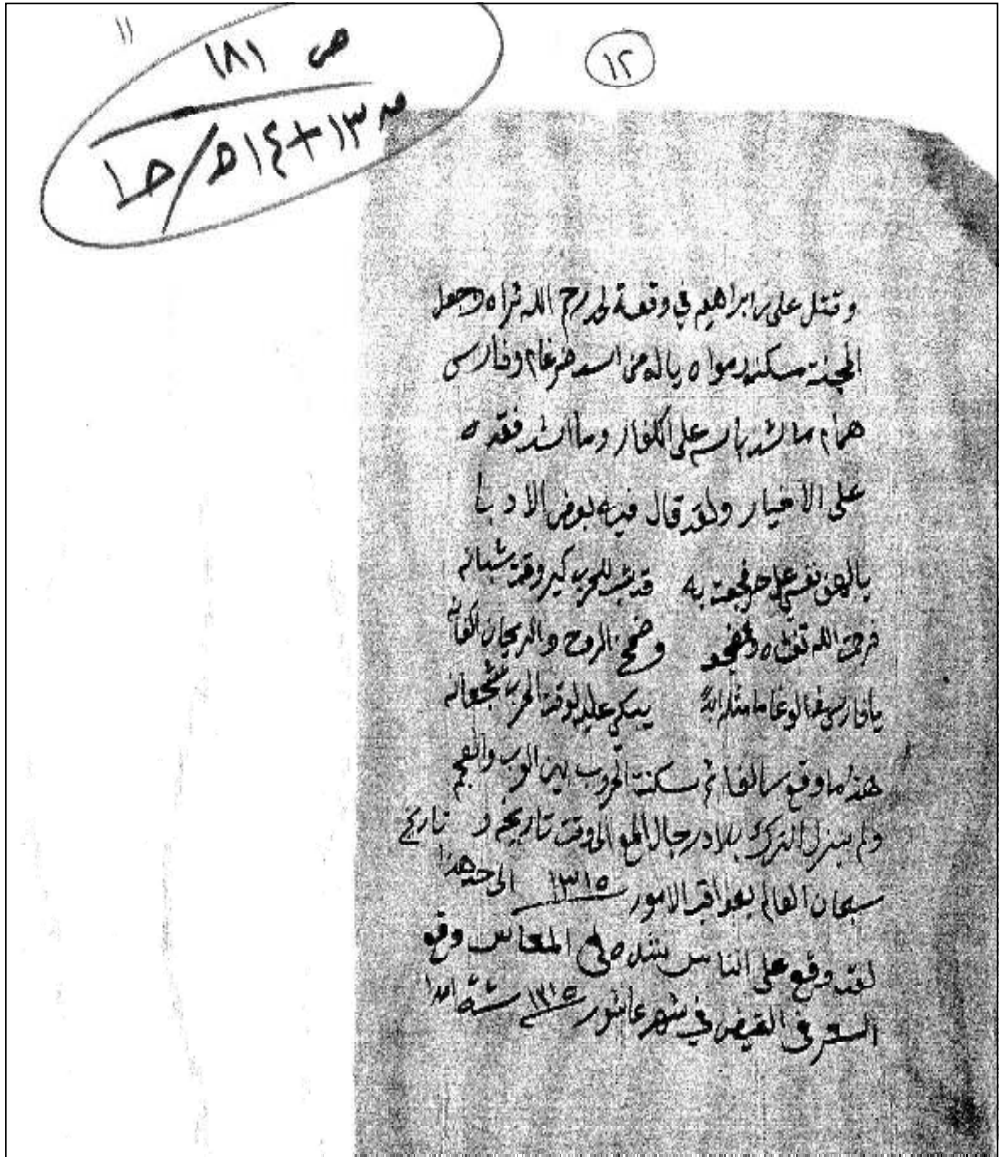 ١١
ص ١٨١
١٣+١٤هـ/حـ١
١٢
وقتل علي بن ابراهيم في وقعة رحم الله ثراه وجعل
الجنة سكنه ومواه ياله من اسد ضرغام وفارس
همام ما اشد باسه على الكفار وما اشد فقده
على الاخيار ولقد قال فيه بعض الادبا
يالهف نفسي على به قد للحرب
الله وضجيع الروح والريحان
يافارس الوغا ما مثله يبكي عليه لوقت الحرب شجعانه
هذا ما وقع سالفا ثم سكنت الحروب بين العرب والعجم
ولم ينزل الترك بلاد رجال المع الى وقت تاريخه تاريخ
سبحان العالم بعواقب الامور ١٣١٥ الى حد هذا
لقد وقع على الناس شده في المعاش وقع
السعر في القيض في شهر عاشور ١٣١٥ ستة